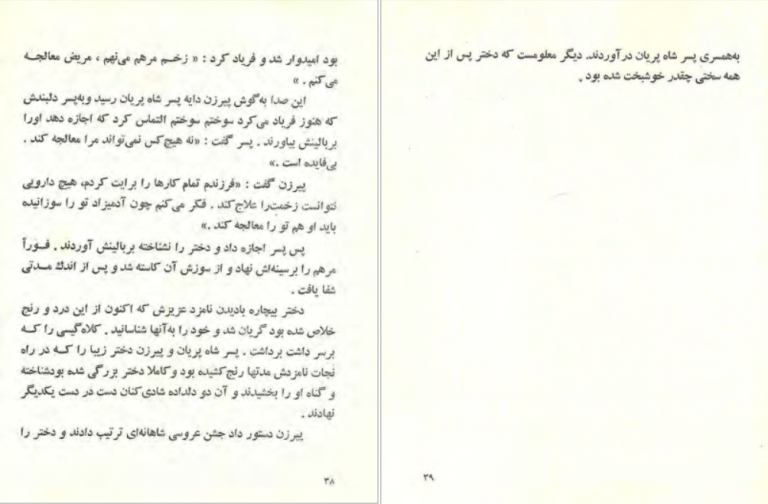 بود امیدوار شد و فریاد کرد : « زخـم مرهم می‌نهم ، مریض معالجـه
می‌کنم . »
این صدا به‌گوش پیرزن دایه پسر شاه پریان رسید وبه‌پسر دلبندش
که هنوز فریاد می‌کرد سوختم سوختم التماس کرد که اجازه دهد اورا
بربالینش بیاورند . پسر گفت : «نه هیچ‌کس نمی‌تواند مرا معالجه کند .
بی‌فایده است .»
پیرزن گفت : «فرزندم تمام کارها را برایت کردم، هیچ دارویی
نتوانست زخمت‌را علاج‌کند . فکر می‌کنم چون آدمیزاد تو را سوزانیده
باید او هم تو را معالجه کند .»
پس پسر اجازه داد و دختر را نشناخته بربالینش آوردند . فـوراً
مرهم را برسینه‌اش نهاد و از سوزش آن کاسته شد و پس از اندك مـدتی
شفا یافت .
دختر بیچاره بادیدن نامزد عزیزش که اکنون از این درد و رنج
خلاص شده بود گریان شد و خود را به‌آنها شناسانید . کلاه‌گیسی را کـه
برسر داشت برداشت . پسر شاه پریان و پیرزن دختر زیبا را کـه در راه
نجات نامزدش مدتها رنج‌کشیده بود و کاملا دختر بزرگی شده بودشناخته
و گناه او را بخشیدند و آن دو دلداده شادی‌کنان دست در دست یکدیگر
نهادند .
پیرزن دستور داد جشن عروسی شاهانه‌ای ترتیب دادند و دختر را
۳۸
به‌همسری پسر شاه پریان درآوردند. دیگر معلومست که دختر پس از این
همه سختی چقدر خوشبخت شده بود .
۳۹